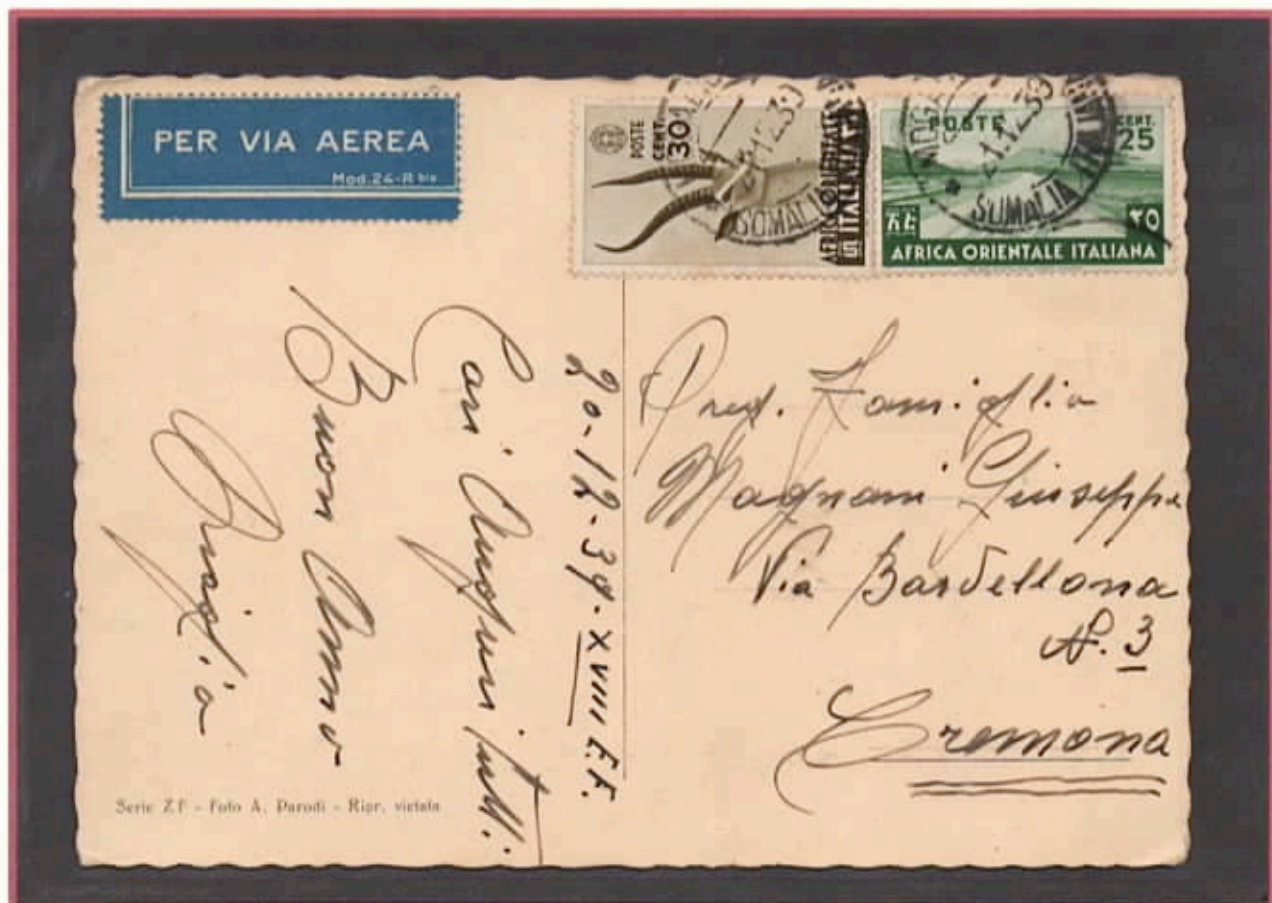 PER VIA AEREA
Mod.24-R bis
POSTE
CENT.
30
AFRICA ORIENTALE
ITALIANA
SOMALIA
POSTE
CENT.
25
٢٥
AFRICA ORIENTALE ITALIANA
SOMALIA ITALIANA
20-12-39-XVIII E.F.
Cari Auguri tutti
Buon Anno
Preg. Famiglia
Magnani Giuseppe
Via Bardellona
N. 3
Cremona
Serie ZF - Foto A. Parodi - Ripr. vietata